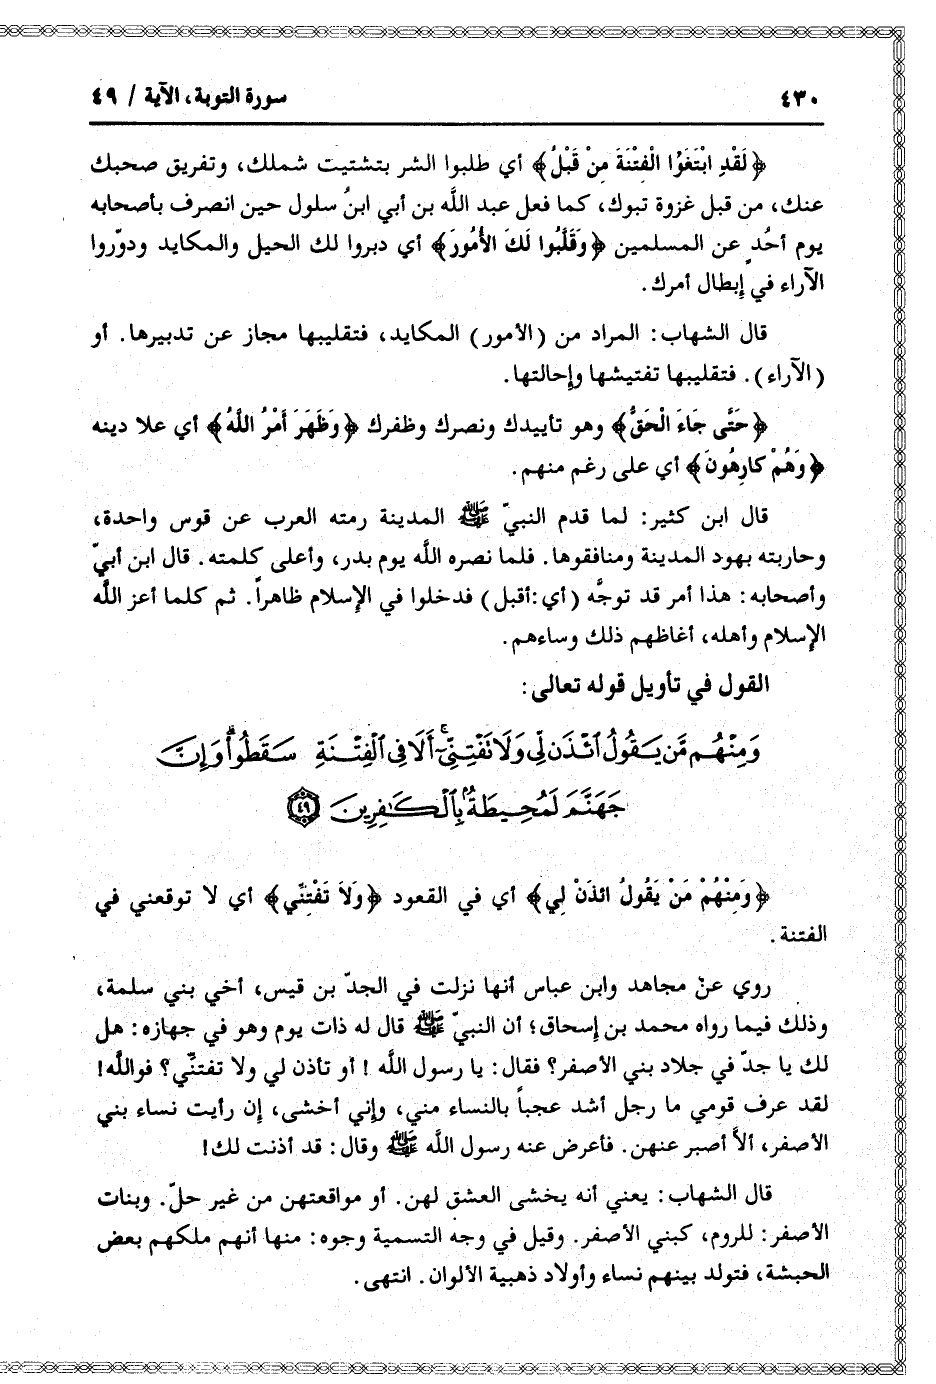 ٤٣٠
سورة التوبة، الآية / ٤٩
﴿لَقَدِ ابْتَغَوُا الْفِتْنَةَ مِنْ قَبْلُ﴾ أي طلبوا الشر بتشتيت شملك، وتفريق صحبك
عنك، من قبل غزوة تبوك، كما فعل عبد اللَّه بن أبي ابنُ سلول حين انصرف بأصحابه
يوم أحُدٍ عن المسلمين ﴿وَقَلَّبُوا لَكَ الأُمُورَ﴾ أي دبروا لك الحيل والمكايد ودوّروا
الآراء في إبطال أمرك.
قال الشهاب: المراد من (الأمور) المكايد، فتقليبها مجاز عن تدبيرها. أو
(الآراء). فتقليبها تفتيشها وإحالتها.
﴿حَتَّى جَاءَ الْحَقُّ﴾ وهو تأييدك ونصرك وظفرك ﴿وَظَهَرَ أَمْرُ اللَّهُ﴾ أي علا دينه
﴿وَهُمْ كارِهُونَ﴾ أي على رغم منهم.
قال ابن كثير: لما قدم النبيّ ﷺ المدينة رمته العرب عن قوس واحدة،
وحاربته يهود المدينة ومنافقوها. فلما نصره اللَّه يوم بدر، وأعلى كلمته. قال ابن أبيّ
وأصحابه: هذا أمر قد توجَّه (أي:أقبل) فدخلوا في الإسلام ظاهراً. ثم كلما أعز اللَّه
الإسلام وأهله، أغاظهم ذلك وساءهم.
القول في تأويل قوله تعالى:
وَمِنْهُم مَّن يَقُولُ ٱئْذَن لِّي وَلَا تَفْتِنِّيٓ ۚ أَلَا فِي ٱلْفِتْنَةِ سَقَطُوا۟ ۗ وَإِنَّ
جَهَنَّمَ لَمُحِيطَةٌۢ بِٱلْكَٰفِرِينَ ۝٤٩
﴿وَمِنْهُمْ مَنْ يَقُولُ ائذَنْ لِي﴾ أي في القعود ﴿وَلاَ تَفْتِنِّي﴾ أي لا توقعني في
الفتنة.
روي عنْ مجاهد وابن عباس أنها نزلت في الجدّ بن قيس، أخي بني سلمة،
وذلك فيما رواه محمد بن إسحاق؛ أن النبيّ ﷺ قال له ذات يوم وهو في جهازه: هل
لك يا جدّ في جلاد بني الأصفر؟ فقال: يا رسول اللَّه ! أو تأذن لي ولا تفتنِّي؟ فواللَّه!
لقد عرف قومي ما رجل أشد عجباً بالنساء مني، وإني أخشى، إن رأيت نساء بني
الأصفر، ألاَّ أصبر عنهن. فأعرض عنه رسول اللَّه ﷺ وقال: قد أذنت لك!
قال الشهاب: يعني أنه يخشى العشق لهن. أو مواقعتهن من غير حلّ. وبنات
الأصفر: للروم، كبني الأصفر. وقيل في وجه التسمية وجوه: منها أنهم ملكهم بعض
الحبشة، فتولد بينهم نساء وأولاد ذهبية الألوان. انتهى.